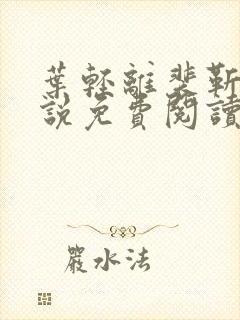 葉輕離裴靳
說免費閱讀
嚴水法